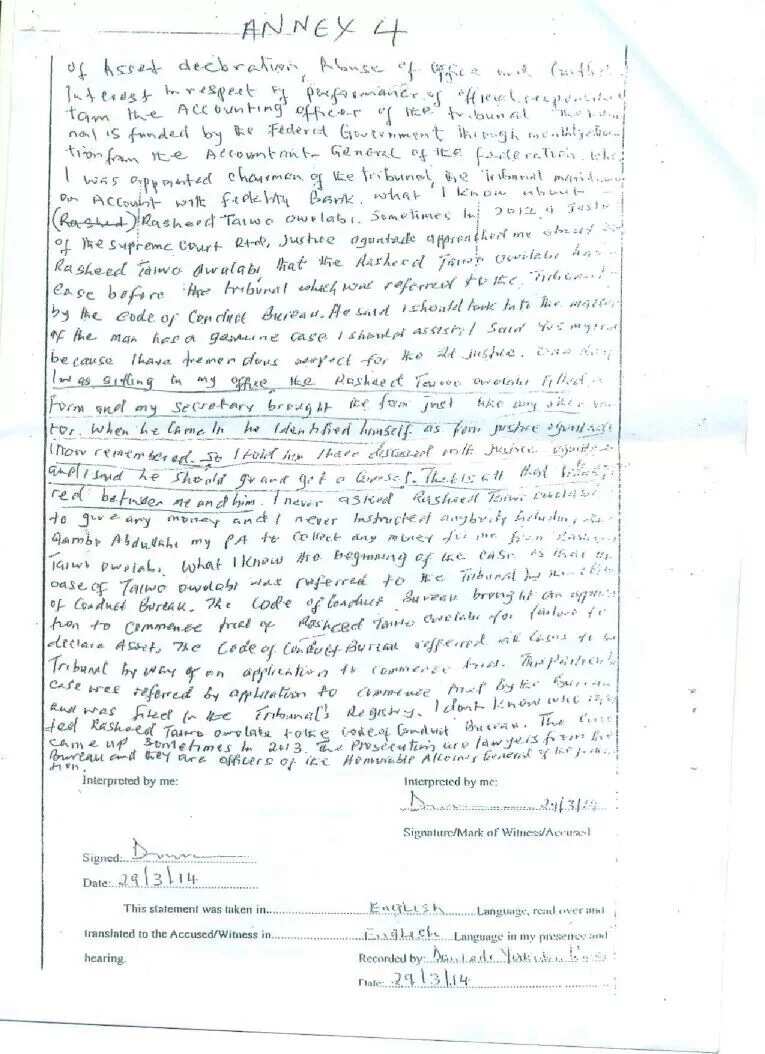 ANNEX 4
of Asset declaration, Abuse of office and Conflict
Interest in respect of performance of official
I am the Accounting officer of the tribunal. The
nal is funded by the Federal Government through
tion from the Accountant General of the federation. When
I was appointed chairman of the tribunal, the tribunal
an Account with Fidelity Bank. what I know about
(Rashed) Rasheed Taiwo owolabi. Sometimes in 2012, a
of the Supreme Court Rtd, Justice oguntade approached me about
Rasheed Taiwo Owolabi, that the Rasheed Taiwo owolabi has
case before the tribunal which was referred to the
by the Code of Conduct Bureau. He said I should look into the matter
if the man has a genuine case I should assist. I said Yes my
because I have tremendous respect for the Rtd justice. One day
I was sitting in my office, the Rasheed Taiwo owolabi filled a
Form and my Secretary brought the form just like any other visi
tor. When he came in he identified himself as from justice oguntade
I now remembered. So I told him I have discussed with Justice oguntade
and I said he should go and get a counsel. That is all that
red between me and him. I never asked Rasheed Taiwo owolabi
to give any money and I never Instructed anybody including
Gambo Abdullahi my PA to collect any money for me from Rasheed
Taiwo owolabi. What I know the beginning of the case is that the
case of Taiwo owolabi was referred to the Tribunal by the Code
of Conduct Bureau. The Code of Conduct Bureau brought an applica
tion to commence trial of Rasheed Taiwo owolabi for failure to
declare Asset. The Code of Conduct Bureau referred all cases to the
Tribunal by way of an application to commence trial. This particular
case was refered by application to commence trial by the Bureau
and was filed in the Tribunal's Registry. I don't know who
ted Rasheed Taiwo owolabi to the Code of Conduct Bureau. The case
came up sometimes in 2013. The Prosecution are lawyers from the
Bureau and they are officers of the Honourable Attorney General of the federa
tion.
Interpreted by me: Interpreted by me:
29/3/14
Signature/Mark of Witness/Accused
Signed:
Date: 29/3/14
This statement was taken in English Language, read over and
translated to the Accused/Witness in English Language in my presence and
hearing. Recorded by:
Date: 29/3/14